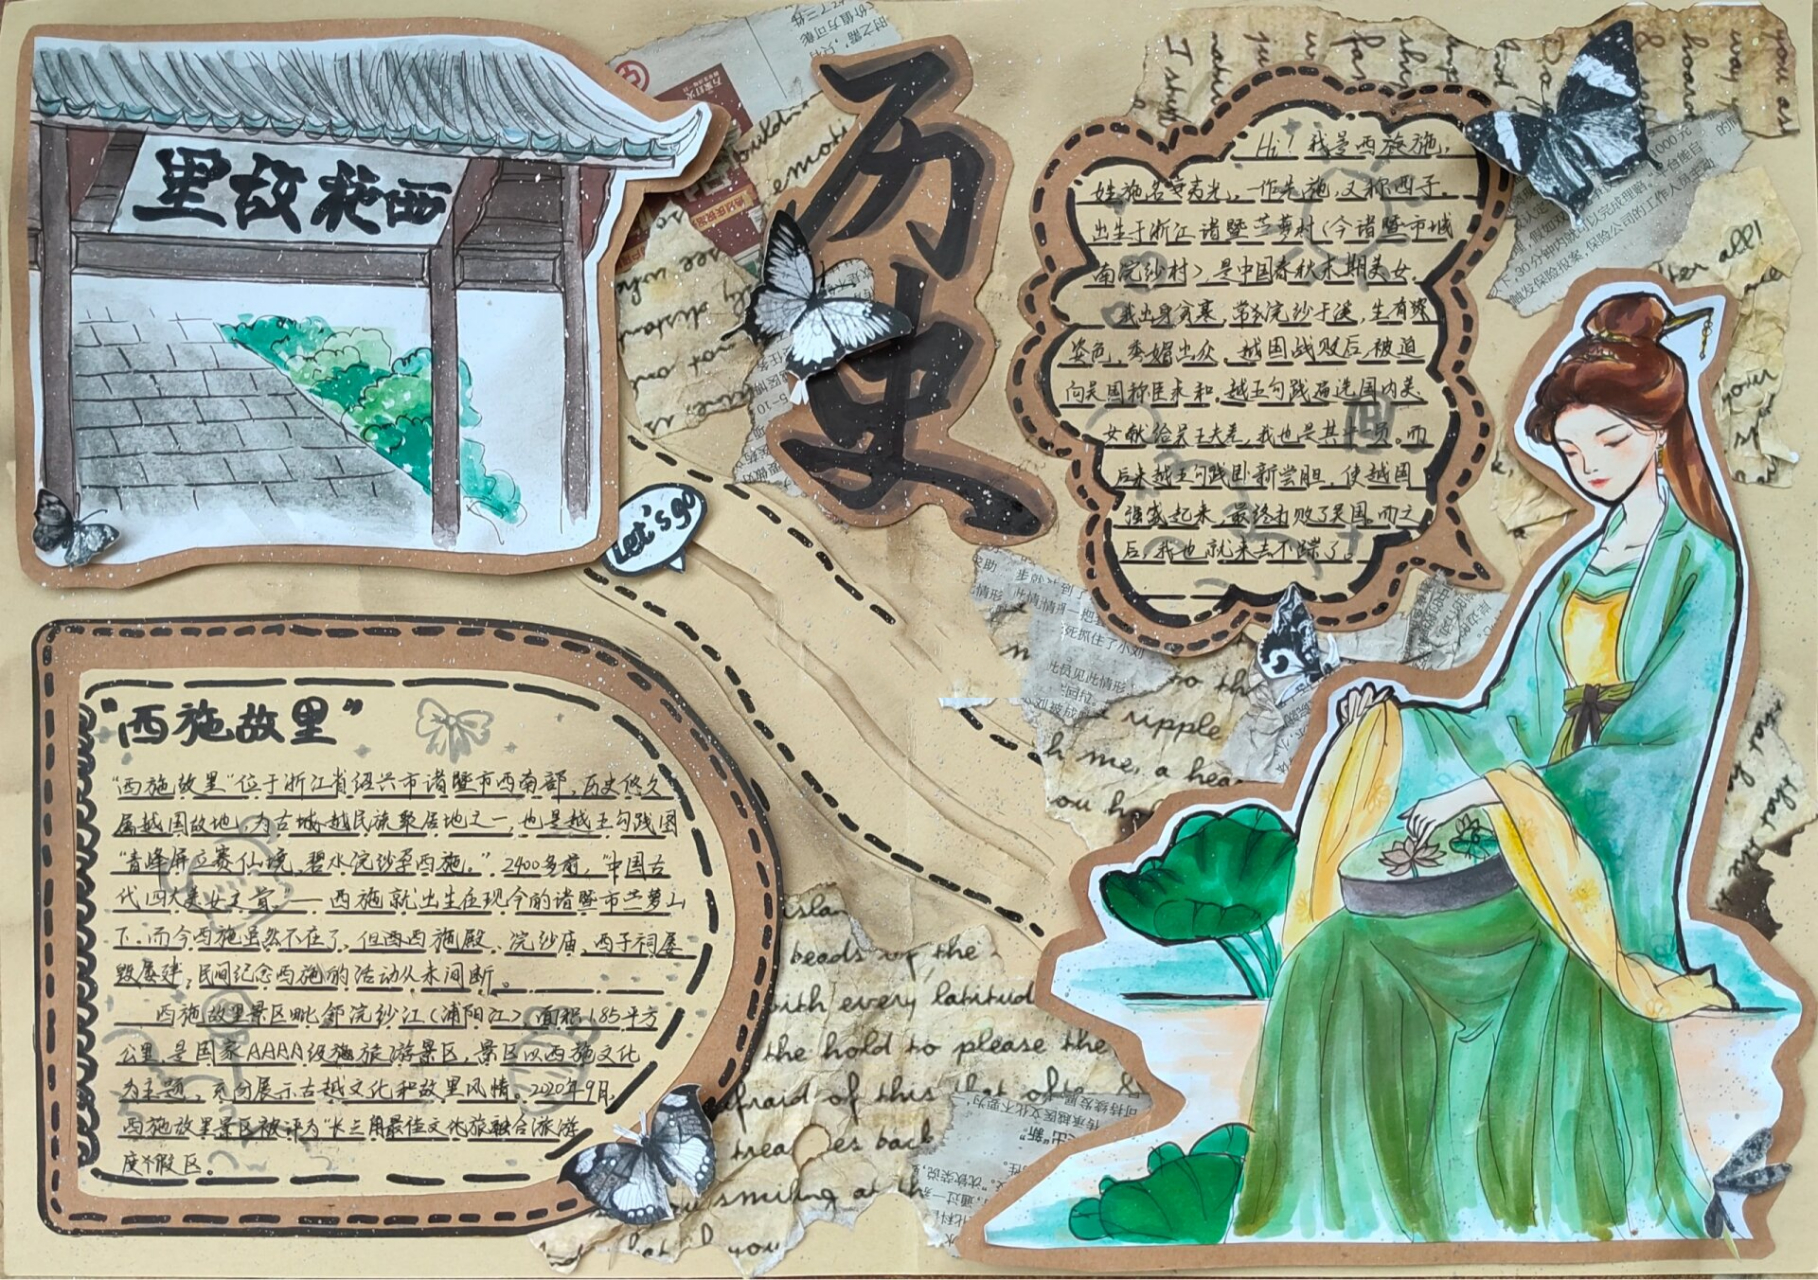 里故施西
历史
Let's go
Hi！我是西施施，
姓施名夷光。一作先施，又称西子。
出生于浙江诸暨苎萝村（今诸暨市城
南浣纱村），是中国春秋末期美女。
我出身贫寒，常浣纱于溪，生有
姿色，秀媚出众，越国战败后，被迫
向吴国称臣求和。越王勾践遍选国内美
女献给吴王夫差，我也是其中一员。而
后来越王勾践卧薪尝胆，使越国
强盛起来，最终打败了吴国。而之
后，我也就来去不踪了。
“西施故里”
“西施故里”位于浙江省绍兴市诸暨市西南部，历史悠久
属越国故地，为古越民族聚居地之一，也是越王勾践图
“青峰屏立赛仙境，碧水浣纱孕西施。”2400多前，“中国古
代四大美女之首 —— 西施就出生在现今的诸暨市苎萝山
下，而今西施虽然不在了，但西施殿、浣纱庙、西子祠屡
毁屡建，民间纪念西施的活动从未间断。
西施故里景区毗邻浣纱江（浦阳江）面积1.85平方
公里，是国家AAAA级旅游景区，景区以西施文化
为主题，充分展示古越文化和故里风情。2020年9月，
西施故里景区被评为“长三角最佳文化旅融合旅游
度假区。
to th
ripple
h me, a hea
ou ho
islan
beads up the
with every latitud
the hold to please the
afraid of this that often &
trea es back
smiling at th
you
after all!
your